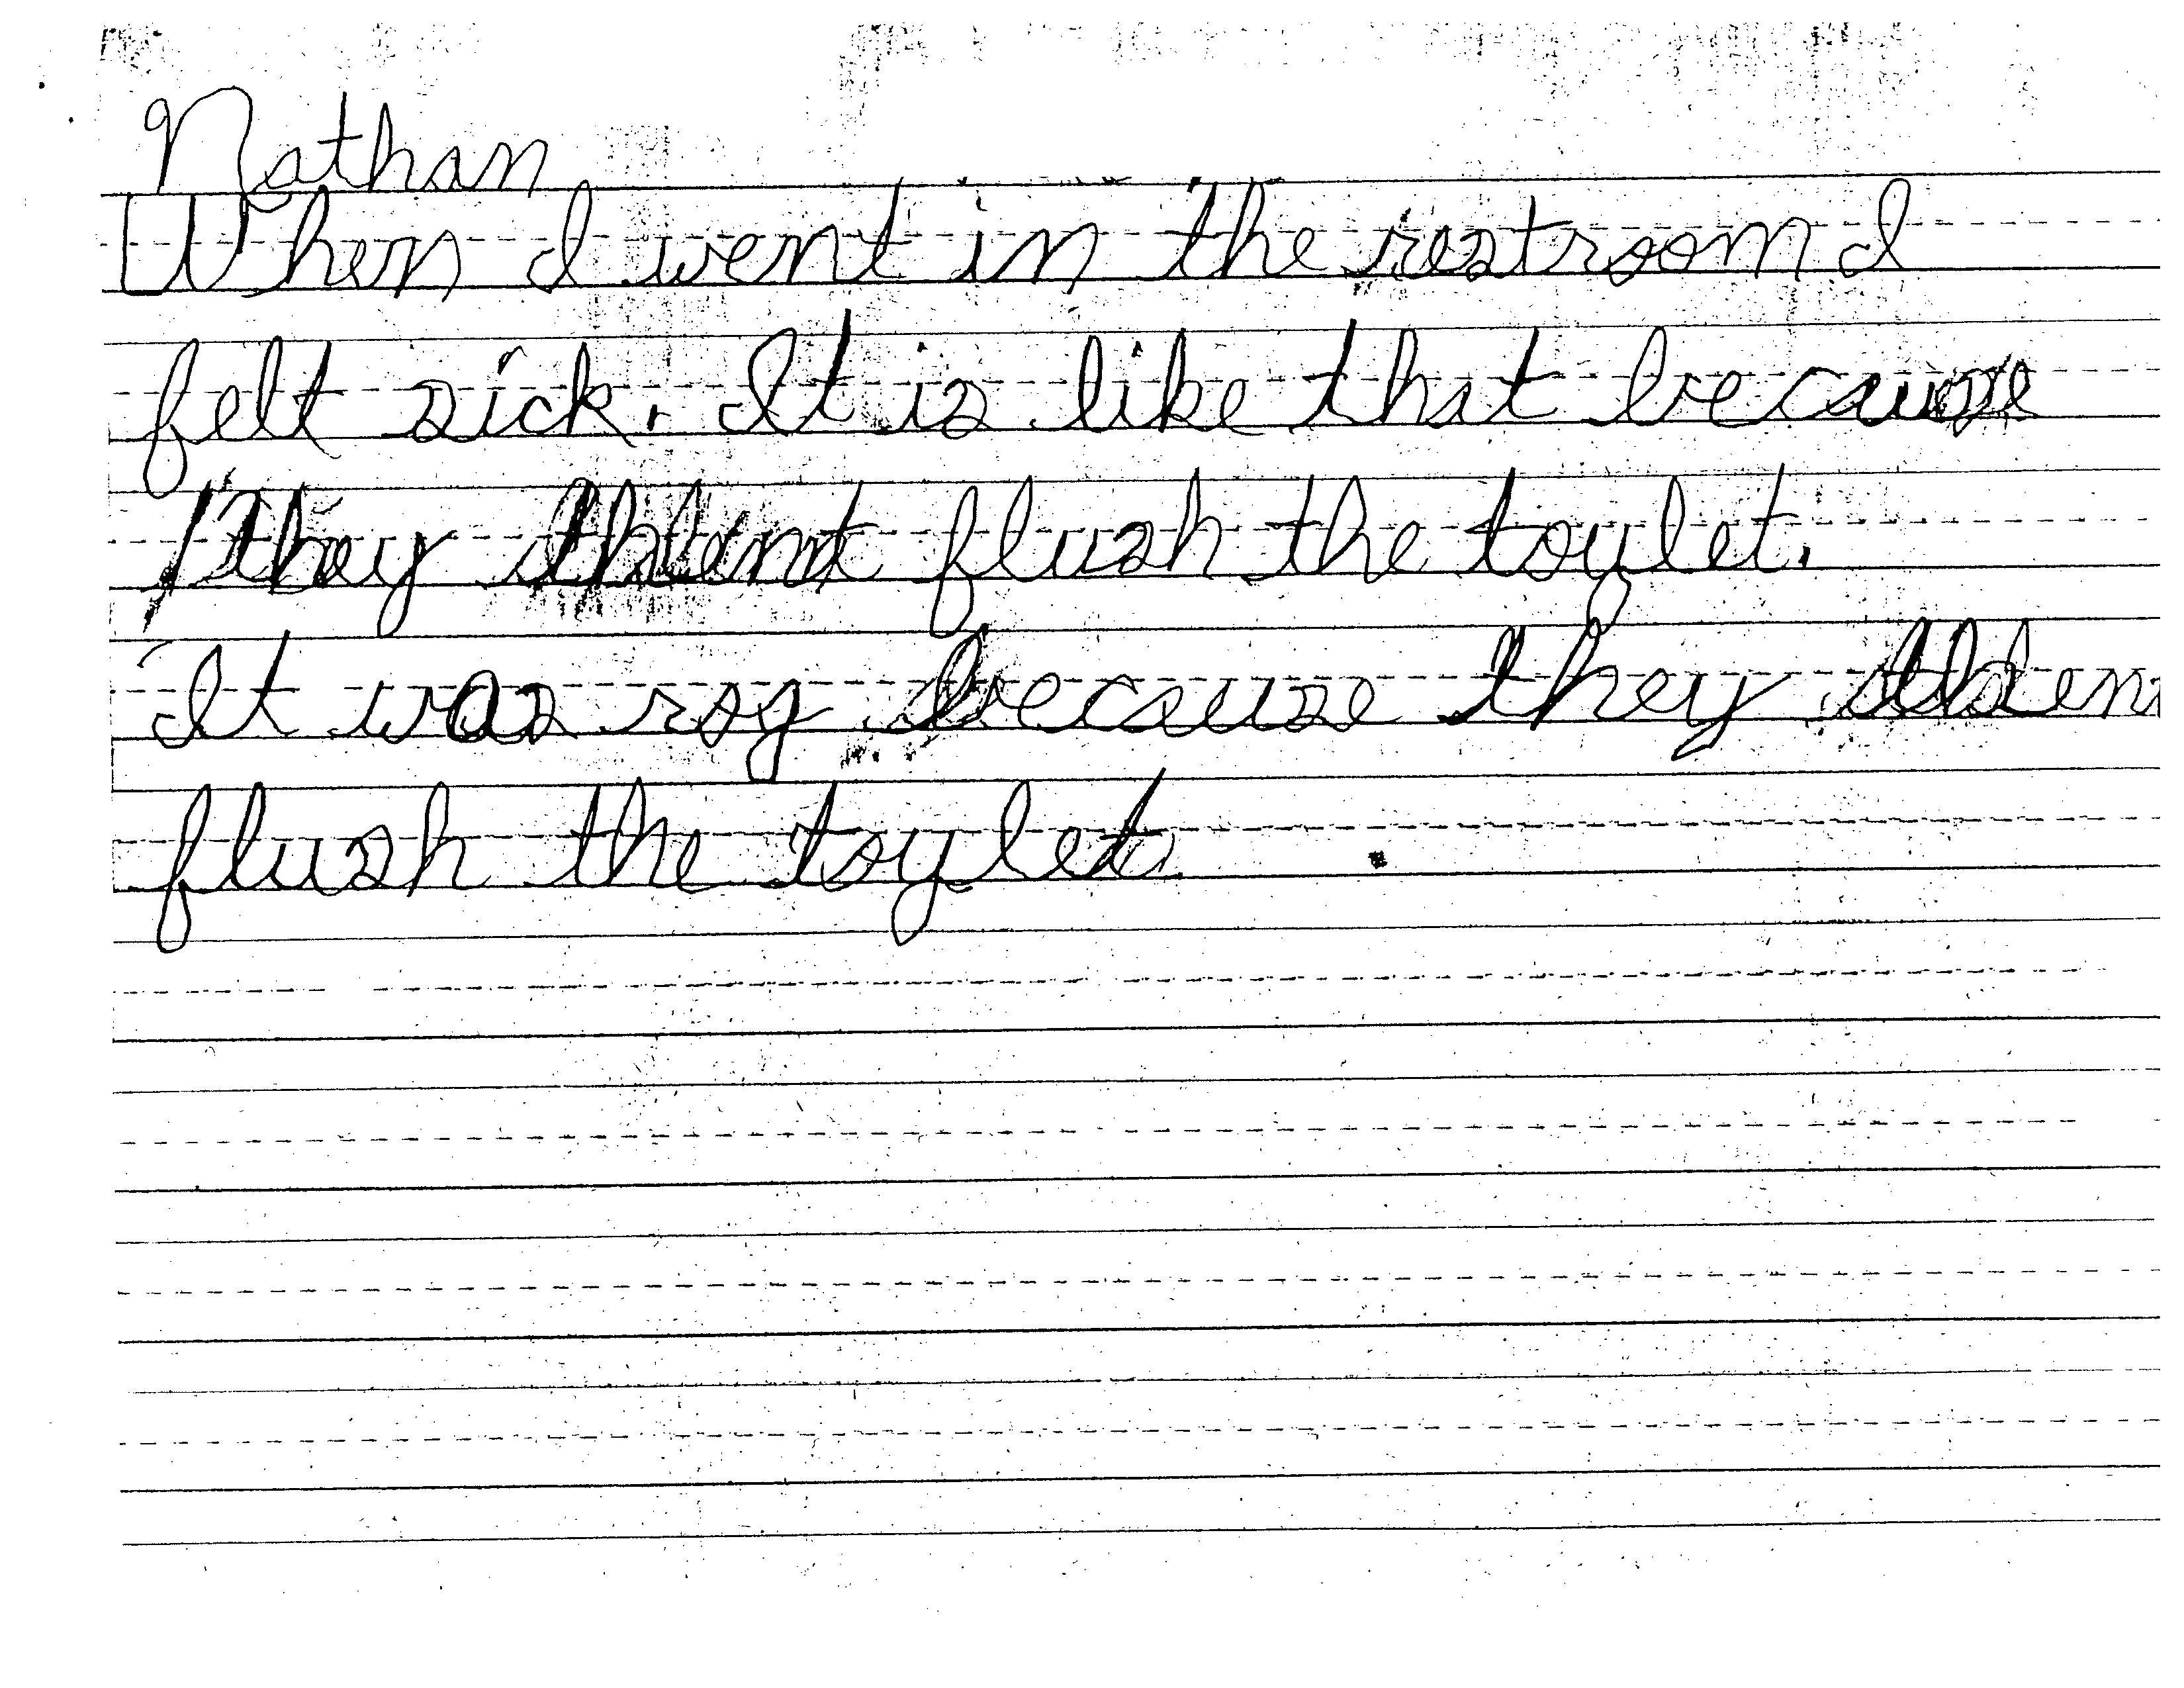 Nathan
When I went in the restroom I
felt sick. It is like that because
they flush the toylet.
It was because they
flush the toylet.